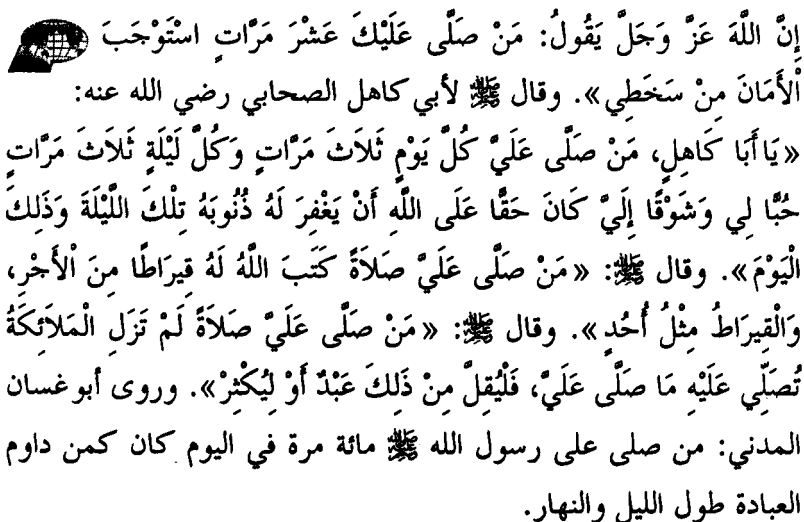 إِنَّ اللَّهَ عَزَّ وَجَلَّ يَقُولُ: مَنْ صَلَّى عَلَيْكَ عَشْرَ مَرَّاتٍ اسْتَوْجَبَ
الْأَمَانَ مِنْ سَخَطِي». وقال ﷺ لأبي كاهل الصحابي رضي الله عنه:
«يَا أَبَا كَاهِلٍ، مَنْ صَلَّى عَلَيَّ كُلَّ يَوْمٍ ثَلَاثَ مَرَّاتٍ وَكُلَّ لَيْلَةٍ ثَلَاثَ مَرَّاتٍ
حُبًّا لِي وَشَوْقًا إِلَيَّ كَانَ حَقًّا عَلَى اللَّهِ أَنْ يَغْفِرَ لَهُ ذُنُوبَهُ تِلْكَ اللَّيْلَةَ وَذَلِكَ
الْيَوْمَ». وقال ﷺ: «مَنْ صَلَّى عَلَيَّ صَلَاةً كَتَبَ اللَّهُ لَهُ قِيرَاطًا مِنَ الْأَجْرِ،
وَالْقِيرَاطُ مِثْلُ أُحُدٍ». وقال ﷺ: «مَنْ صَلَّى عَلَيَّ صَلَاةً لَمْ تَزَلِ الْمَلَائِكَةُ
تُصَلِّي عَلَيْهِ مَا صَلَّى عَلَيَّ، فَلْيُقِلَّ مِنْ ذَلِكَ عَبْدٌ أَوْ لِيُكْثِرْ». وروى أبو غسان
المدني: من صلى على رسول الله ﷺ مائة مرة في اليوم كان كمن داوم
العبادة طول الليل والنهار.